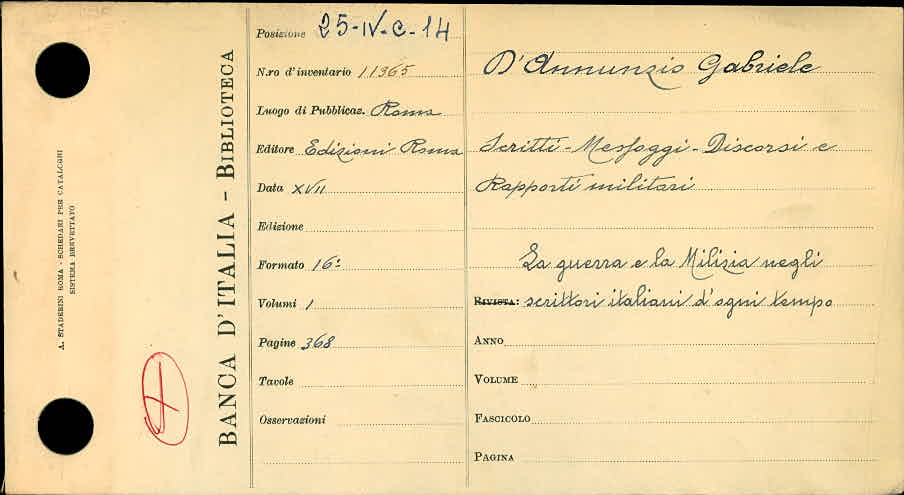 A. STADERINI ROMA - SCHEDARI PER CATALOGHI
SISTEMA BREVETTATO
BANCA D'ITALIA - BIBLIOTECA
Posizione 25-IV-C-14
N.ro d'inventario 11365
Luogo di Pubblicaz. Roma
Editore Edizioni Roma
Data XVII
Edizione
Formato 16º
Volumi 1
Pagine 368
Tavole
Osservazioni
D'Annunzio Gabriele
Scritti - Messaggi - Discorsi e
Rapporti militari
La guerra e la Milizia negli
RIVISTA: scrittori italiani d'ogni tempo
ANNO
VOLUME
FASCICOLO
PAGINA